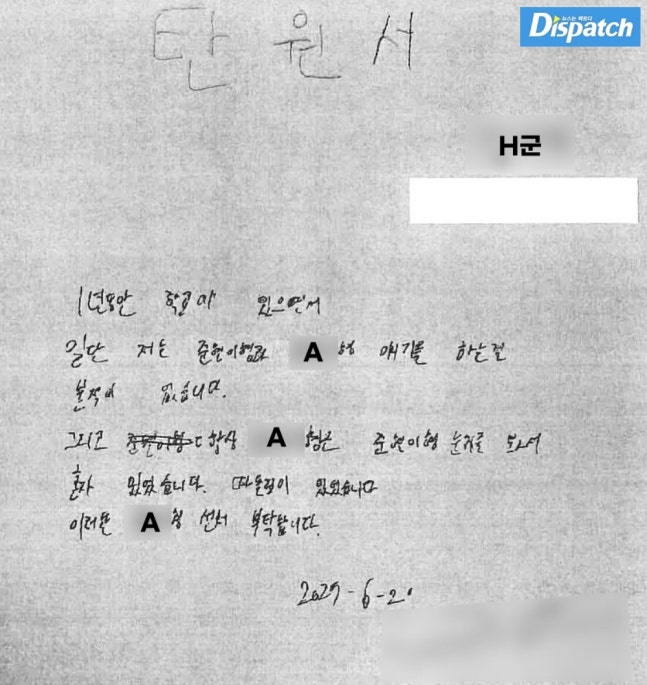 뉴스는 팩트다
Dispatch
탄원서
H군
1년동안 학교에 있으면서
일단 저는 준원이형과 A형 얘기를 하는걸
본적이 없습니다.
그리고 항상 A형은 준원이형 눈치를 보면서
혼자 있었습니다. 따돌림이 있었습니다
A형 선처 부탁합니다.